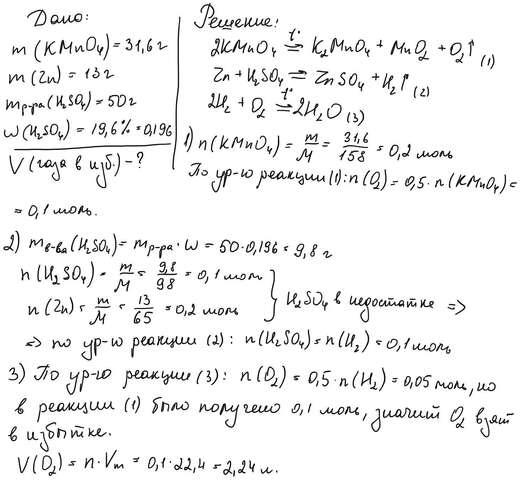 Дано:
m(KMnO₄)=31,6г
m(Zn)=13г
mр-ра(H₂SO₄)=50г
w(H₂SO₄)=19,6%=0,196
V(газа в изб.)-?
Решение:
2KMnO₄ =t° K₂MnO₄+MnO₂+O₂↑ (1)
Zn+H₂SO₄=ZnSO₄+H₂↑ (2)
2H₂+O₂ =t° 2H₂O (3)
1) n(KMnO₄)=m/M=31,6/158=0,2 моль
По ур-ю реакции (1): n(O₂)=0,5·n(KMnO₄)=
=0,1 моль.
2) mв-ва(H₂SO₄)=mр-ра·w=50·0,196=9,8г
n(H₂SO₄)=m/M=9,8/98=0,1 моль
n(Zn)=m/M=13/65=0,2 моль } H₂SO₄ в недостатке =>
=> по ур-ю реакции (2): n(H₂SO₄)=n(H₂)=0,1 моль
3) По ур-ю реакции (3): n(O₂)=0,5·n(H₂)=0,05 моль, но
в реакции (1) было получено 0,1 моль, значит O₂ взят
в избытке.
V(O₂)=n·Vm=0,1·22,4=2,24 л.